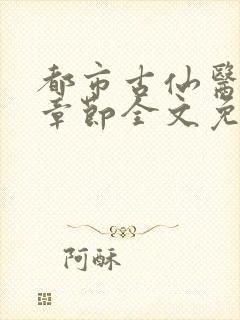 都市古仙醫
章節全文免
阿酥